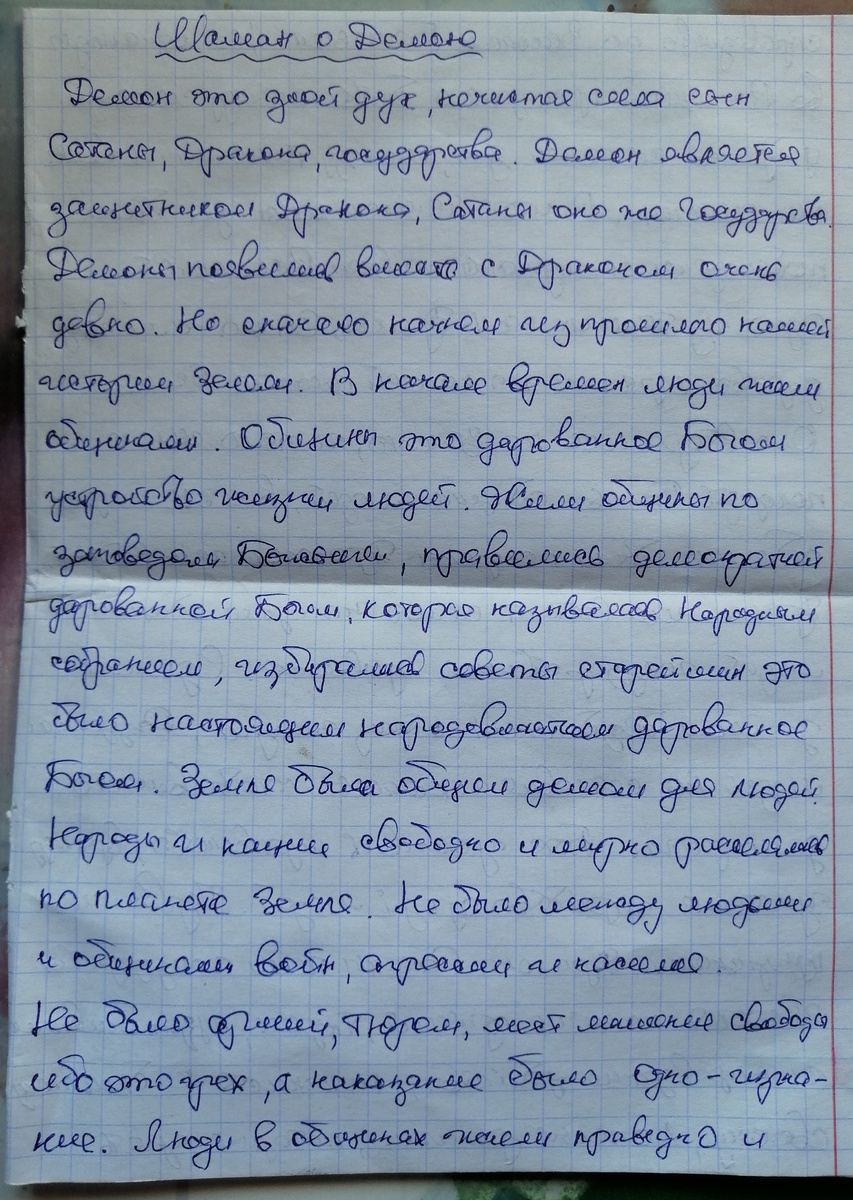 Шаман о Демоне
Демон это злой дух, нечистая сила сын
Сатаны, Дракона, государства. Демон является
защитником Дракона, Сатаны оно же Государства.
Демоны появились вместе с Драконом очень
давно. Но сначало начнем из прошлого нашей
истории Земли. В начале времен люди жили
общинами. Общины это дарованное Богом
устройство жизни людей. Жили общины по
заповедям Божьими, правились демократией
дарованной Богом, которая называлась Народным
собранием, избирались советы старейшин это
было настоящем народовластием дарованное
Богом. Земля была общем домом для людей.
Народы и нации свободно и мирно расселялись
по планете Земля. Не было между людьми
и общинами войн, агрессии и насилия.
Не было армий, тюрем, мест лишения свободы
ибо это грех, а наказание было одно - изгна-
ние. Люди в общинах жили праведно и